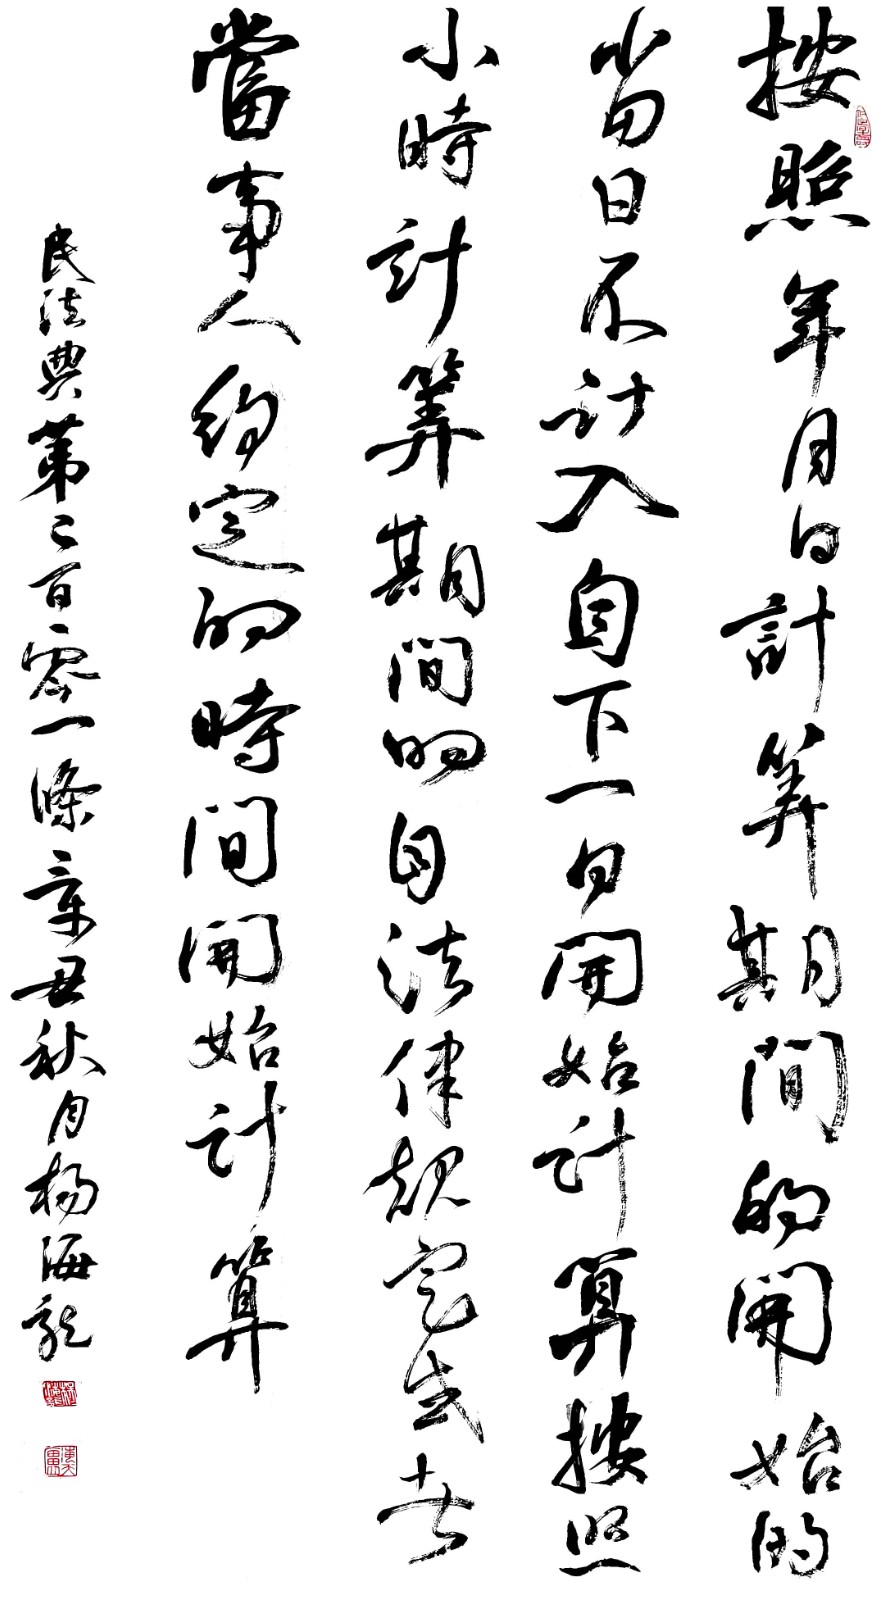 按照年月日計算期間的開始的
當日不計入自下一日開始計算按照
小時計算期間的自法律規定或者
當事人約定的時間開始計算
民法典第二百零一條辛丑秋月楊海龍